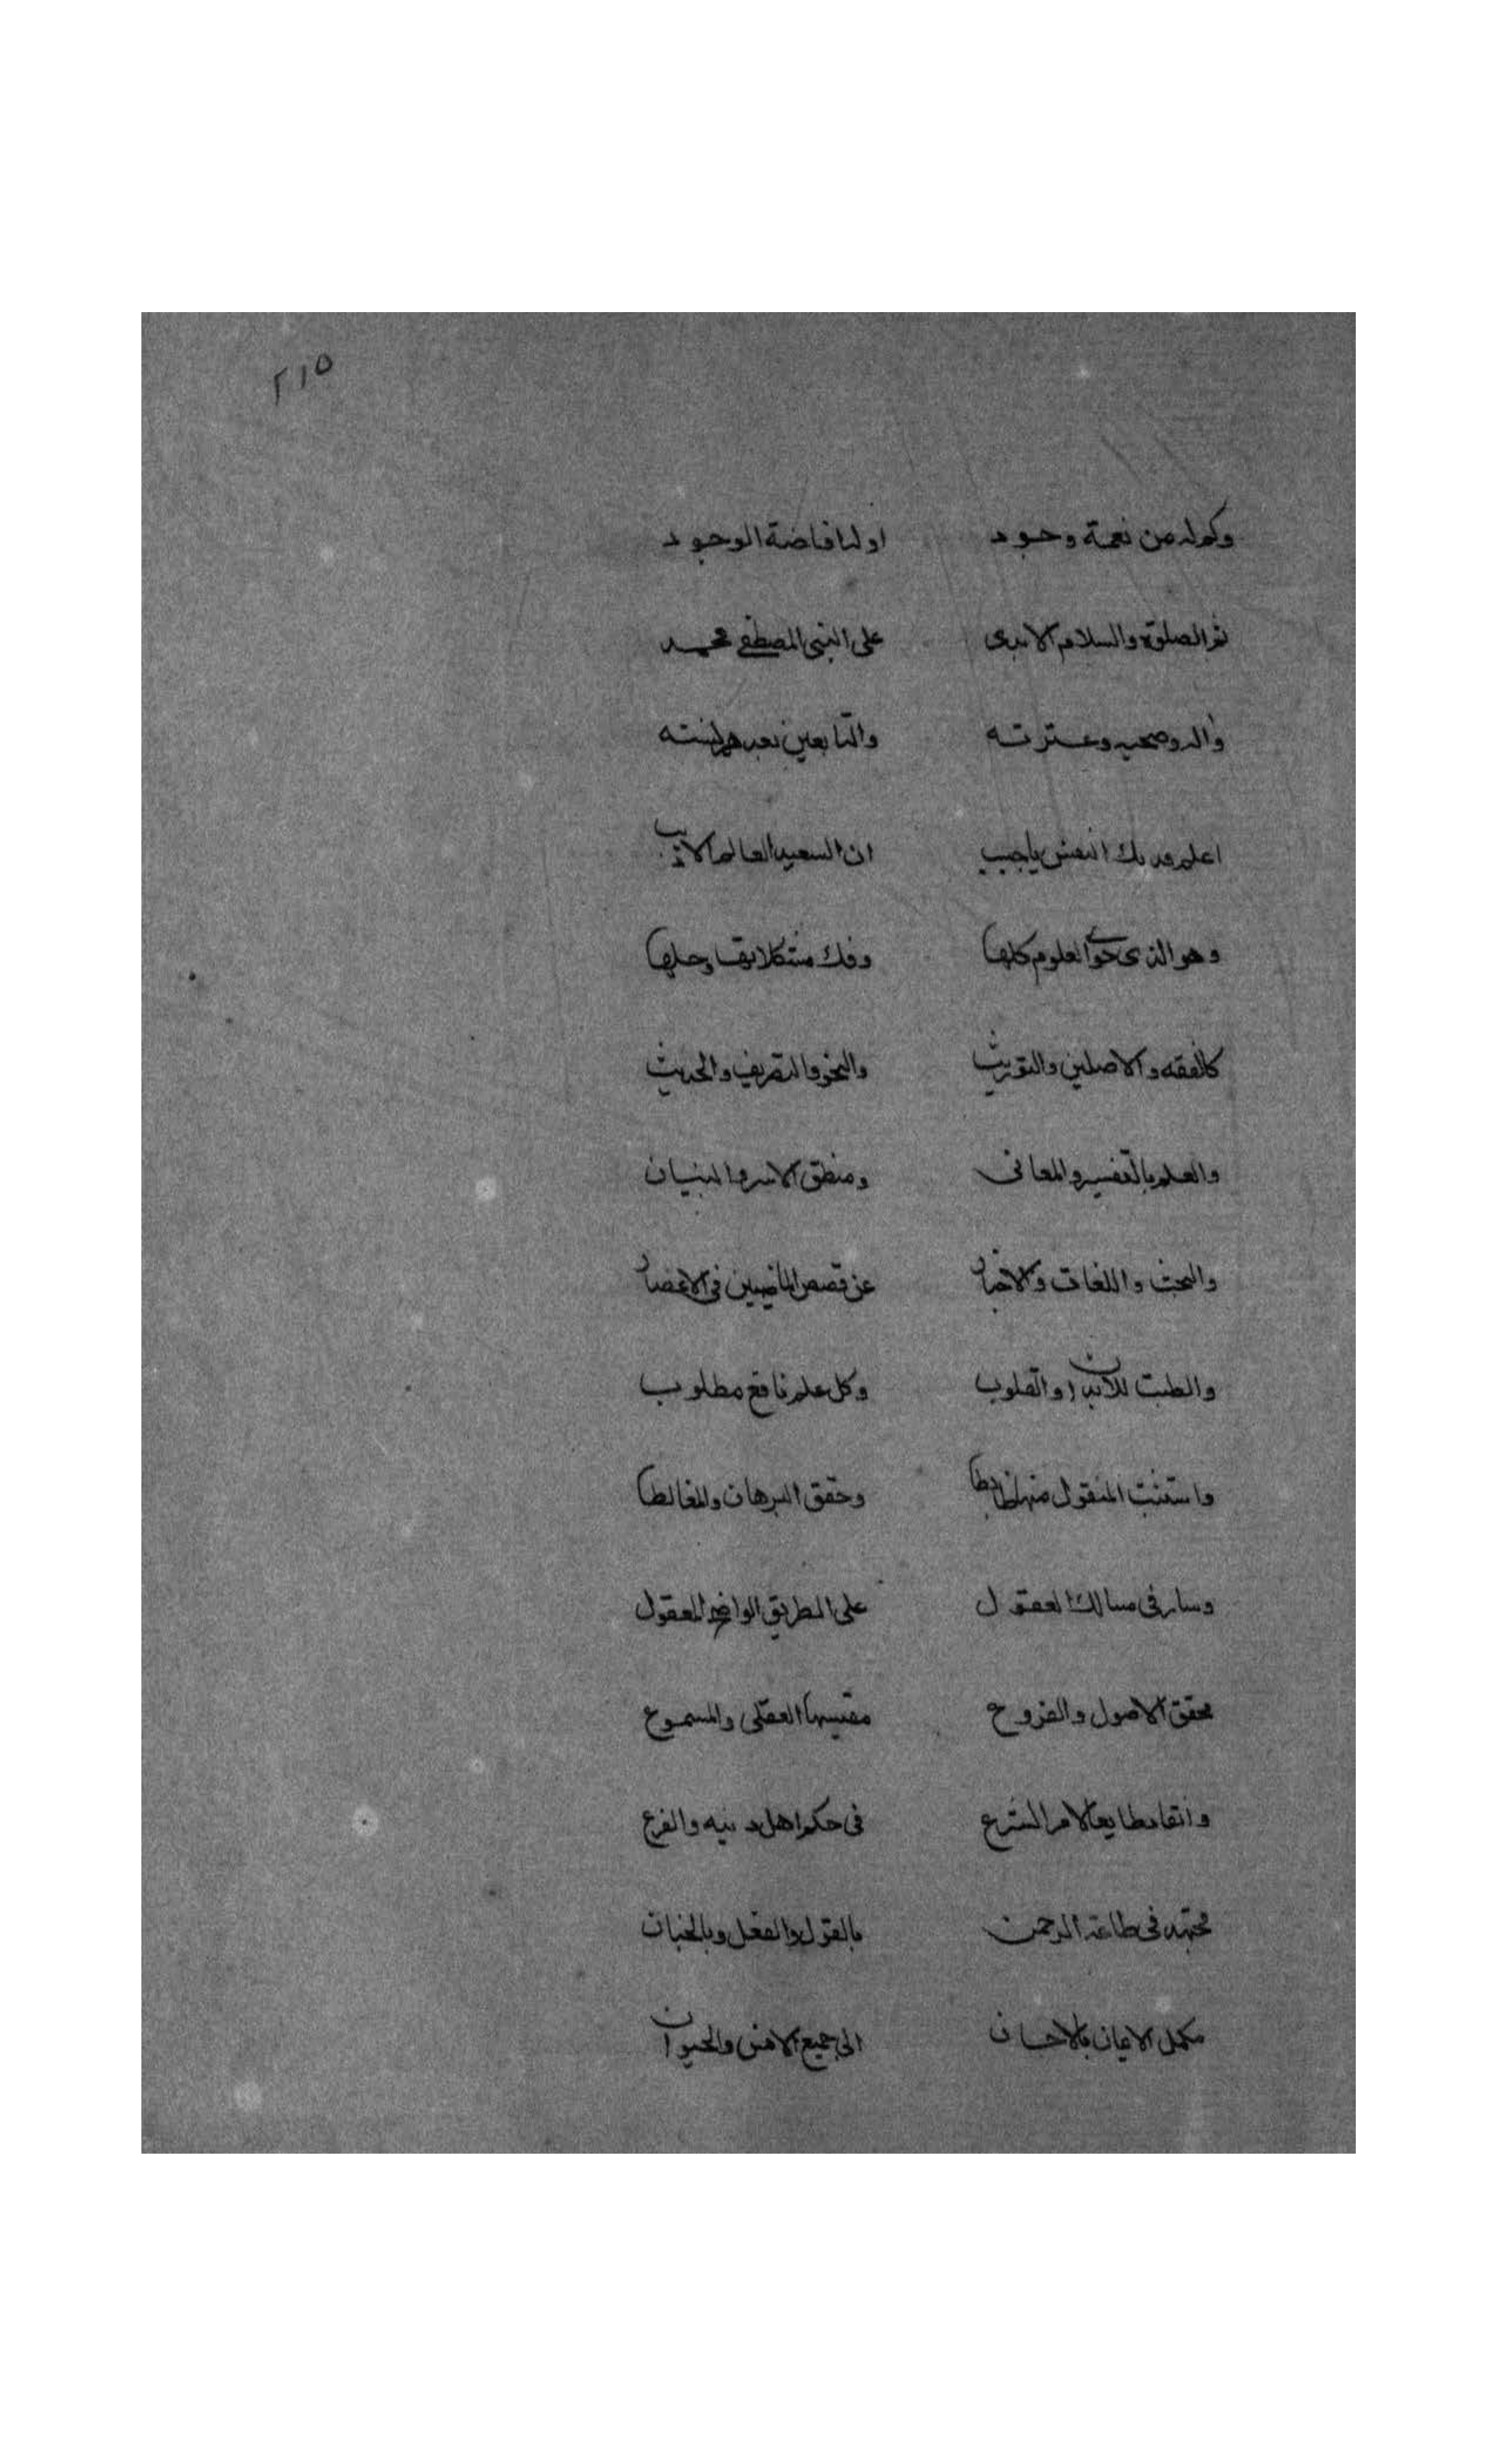 ٢١٥
وكم له من نعمة وجود اولها فاضة الوجود
ثم الصلوة والسلام الابدى على النبى المصطفى محمد
واله وصحبه وعترته والتابعين بعدهم لسنته
اعلم فدتك النفس يا حبيب ان السعيد العالم الاديب
وهو الذى حوى العلوم كلها وفك مشكلاتها وحلها
كالفقه والاصلين والتوريث والنحو والتصريف والحديث
والعلم بالتفسير والمعانى ومنطق الانس والبيان
والبحث واللغات والاخبار عن قصص الماضيين فى الاعصار
والطب للابدان والقلوب وكل علم نافع مطلوب
واستثبت المنقول منها ضابطا وحقق البرهان والمغالطا
وسار فى مسالك العقول على الطريق الواضح المعقول
محقق الاصول والفروع مقتبسها العقلى والمسموع
وانقاد طايعا لامر الشرع فى حكم اهل دينه والفرع
مجتهد فى طاعة الرحمن بالقول والفعل وبالجنان
مكمل الايمان بالاحسان الى جميع الانس والحيوان